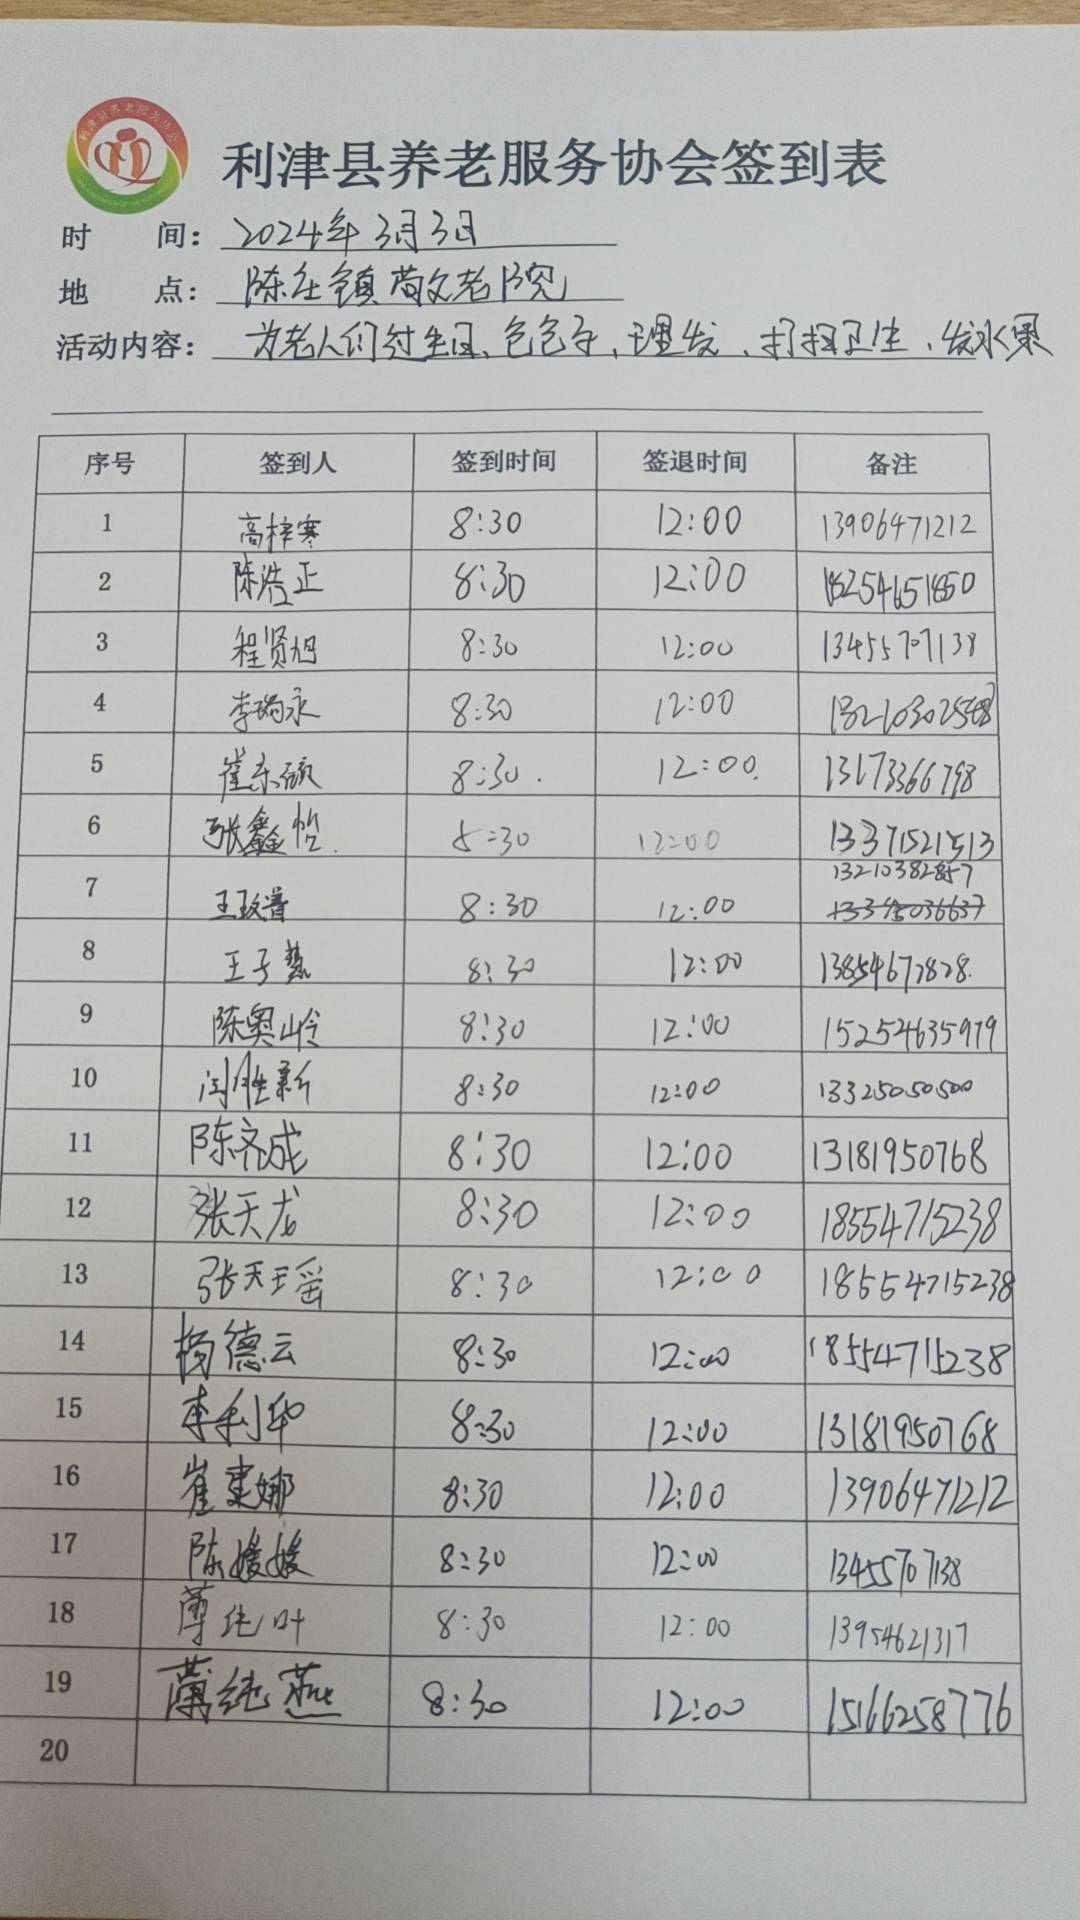 利津县养老服务协会
利津县养老服务协会签到表
时 间： 2024年3月3日
地 点： 陈庄镇 敬老院
活动内容： 为老人们过生日、包包子、理发、打扫卫生、发水果
序号 签到人 签到时间 签退时间 备注
1 高梓寒 8:30 12:00 13906471212
2 陈浩正 8:30 12:00 18254651850
3 程贤旭 8:30 12:00 13455707138
4 李瑞永 8:30 12:00
5 崔东硕 8:30. 12:00. 13173366798
6 张鑫怡. 8:30 12:00 13371521513
7 8:30 12:00 13210382857
13345036637
8 王子慧 8:30 12:00 13854672828.
9 陈奥岭 8:30 12:00 15254635979
10 闫胜新 8:30 12:00 13325050500
11 陈齐成 8:30 12:00 13181950768
12 张天龙 8:30 12:00 18554715238
13 张天瑶 8:30 12:00 18554715238
14 杨德云 8:30 12:00 18554715238
15 李利华 8:30 12:00 13181950768
16 崔建娜 8:30 12:00 13906471212
17 陈媛媛 8:30 12:00 13455707138
18 薄纯叶 8:30 12:00 13954621317
19 薄纯燕 8:30 12:00 15166258776
20